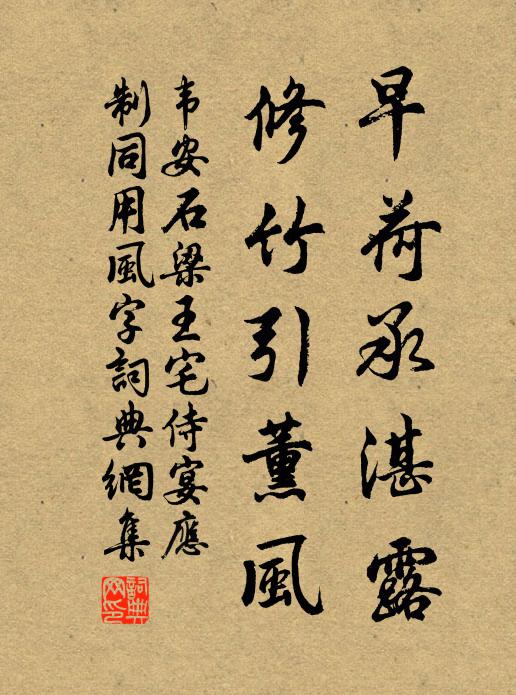 早荷承湛露
修竹引薰風
韦安石梁王宅侍宴應
制同用風字詞典網集
詞典網印